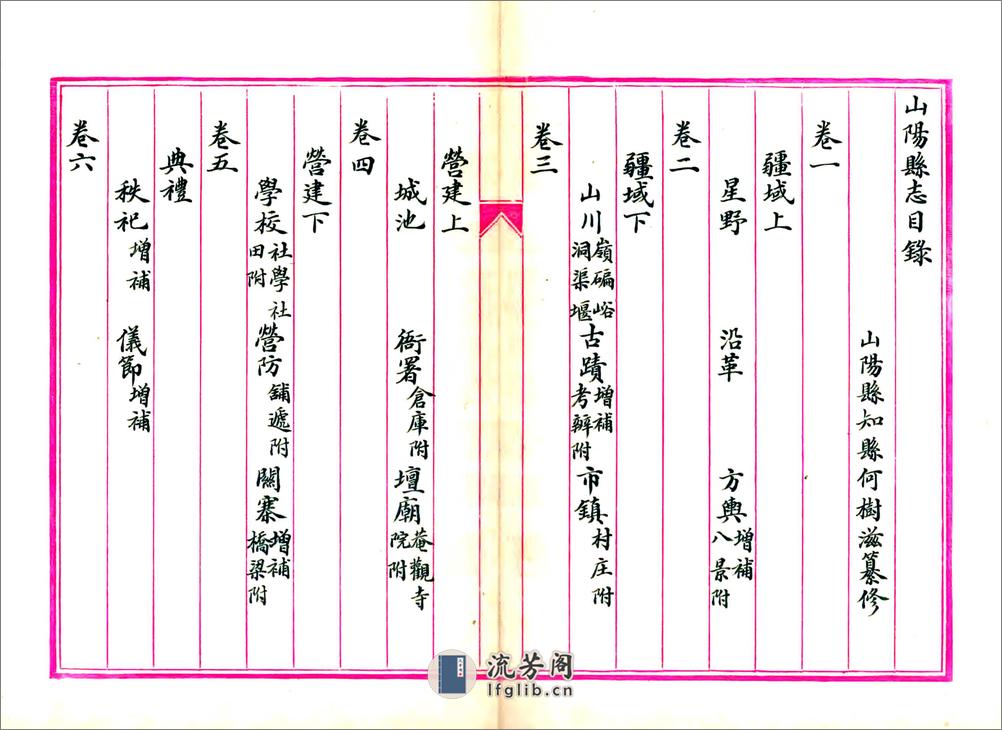 山陽縣志目錄
山陽縣知縣何樹滋纂修
卷一
疆域上
星野 沿革 方輿增補八景附
卷二
疆域下
山川嶺碥峪洞渠堰古蹟增補考辨附市鎮村庄附
卷三
營建上
城池 衙署倉庫附壇廟菴觀寺院附
卷四
營建下
學校社學社田附營防舖遞附關寨增補橋梁附
卷五
典禮
秩祀增補 儀節增補
卷六
流芳阁
lfglib.cn